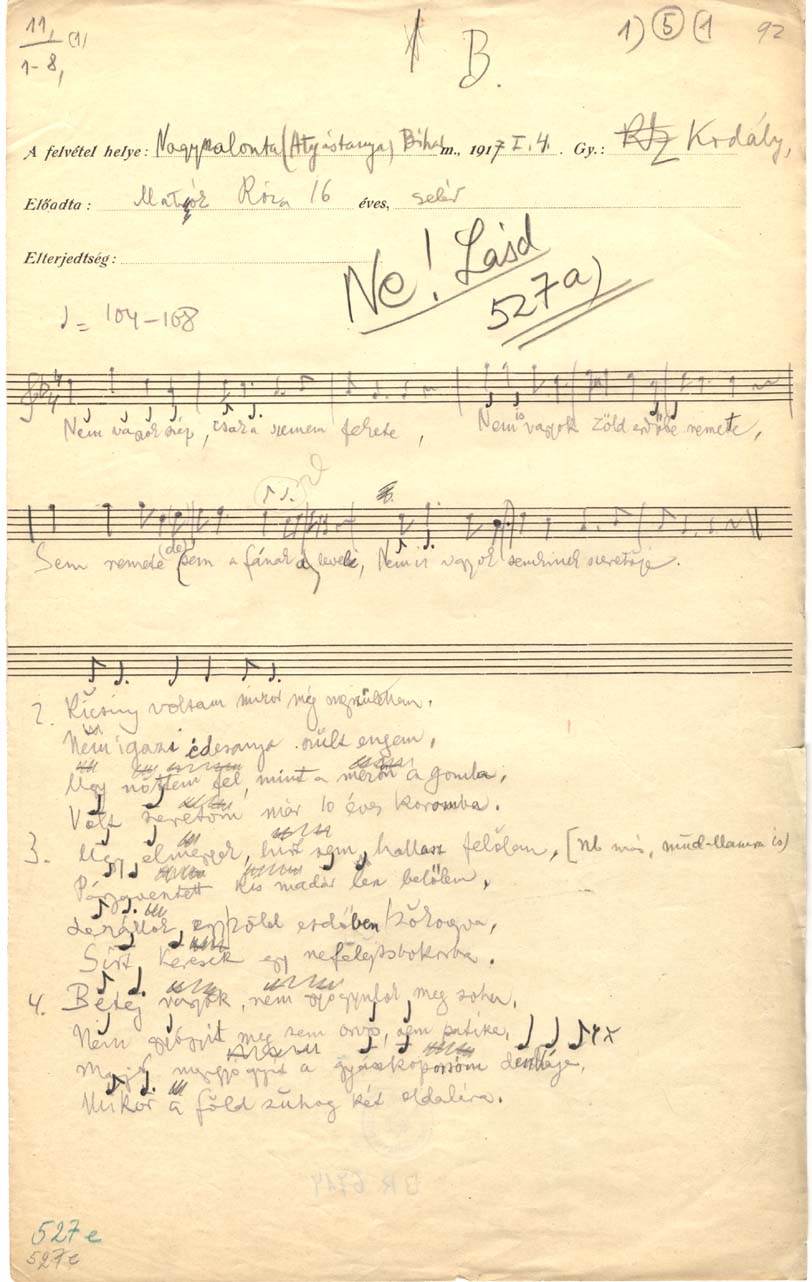 11, (1)
1-8,
1) 5 (1 92
B.
A felvétel helye: Nagyszalonta (Atyástanya) Bihar m., 1917 I. 4. Gy.: Kodály,
Előadta: Róza 16 éves, cseléd
Elterjedtség:
Ne! Lásd
527a)
♩ = 104-108
Nem vagyok szép, csak a szemem fekete, Nem is vagyok zöld erdőbe remete,
Sem remete (de) sem a fának a levele, Nem is vagyok senkinek szeretője.
2. Kicsiny voltam mikor még megszülettem,
Nem igazi édesanya szült engem,
Ugy nőttem fel, mint a mezőn a gomba,
Vólt szeretőm már 10 éves koromba.
3. Ugy elmegyek, hírt sem hallasz felőlem, [Nb más,
Párjavesztett kis madár lesz belőlem,
zöld erdőben zokogva,
Sírt keresek egy nefelejtsbokorba.
4. Beteg vagyok, nem gyógyulok meg soha,
Nem gyógyit meg sem orvos, sem patika,
Majd meggyógyit a gyászkoporsóm deszkája,
Mikor a föld zuhog két oldalára.
527e
527e